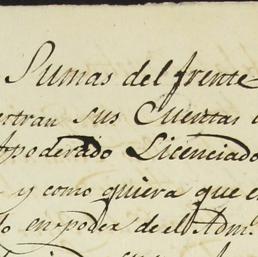 Sumas del frente
sus Cuentas
Apoderado Licenciado
y como quiera que e
do en poder de el Adm.